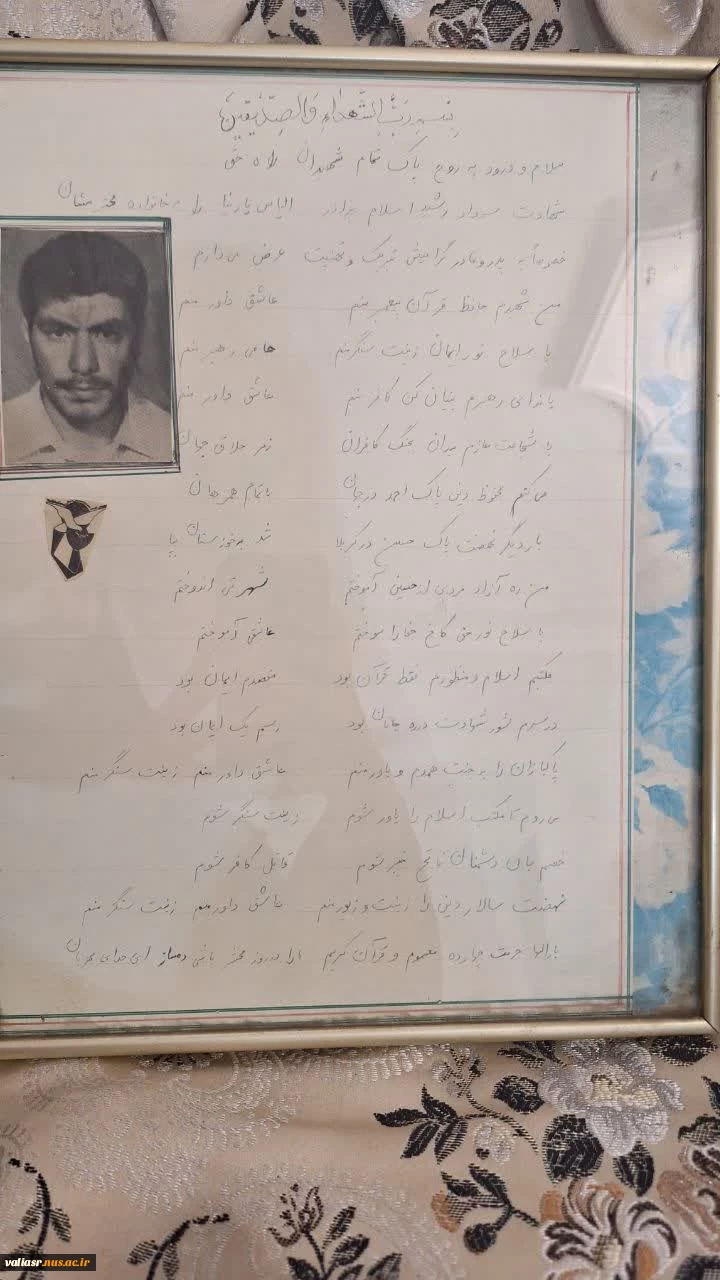 بسم رب الشهداء والصدیقین
سلام و درود به روح پاک تمام شهیدان راه حق
شهادت سردار رشید اسلام برادر الیاس پارسا را به خانواده محترمشان
خصوصاً به پدر و مادر گرامیش تبریک و تهنیت عرض می دارم
من شهیدم حافظ قرآن پیغمبر منم عاشق داور منم
با سلاح نور ایمان زینت سنگر منم حامی رهبر منم
با ندای رهبرم بنیان کن کافر منم عاشق داور منم
با شجاعت عازم میدان جنگ کافران
می کنم محفوظ دین پاک احمد در جهان با تمام همرهان
بار دیگر نهضت پاک حسین در کربلا شد به خوزستان بپا
من ره آزاد مردی از حسین آموختم
با سلاح نور حق کاخ جفا را سوختم عاشقی آموختم
مکتبم اسلام و منظورم فقط قرآن بود مقصدم ایمان بود
در سرم شور شهادت در ره جانان بود
پاکبازان را به جنت همدم و یاور منم عاشق داور منم زینت سنگر منم
می روم تا مکتب اسلام را یاور شوم زینت سنگر شوم
خصم جان دشمنان فاتح خیبر شوم قاتل کافر شوم
نهضت سالار دین را زینت و زیور منم عاشق داور منم زینت سنگر منم
بارالها حرمت چهارده معصوم و قرآن کریم ای خدای مهربان
valiasr.nus.ac.ir